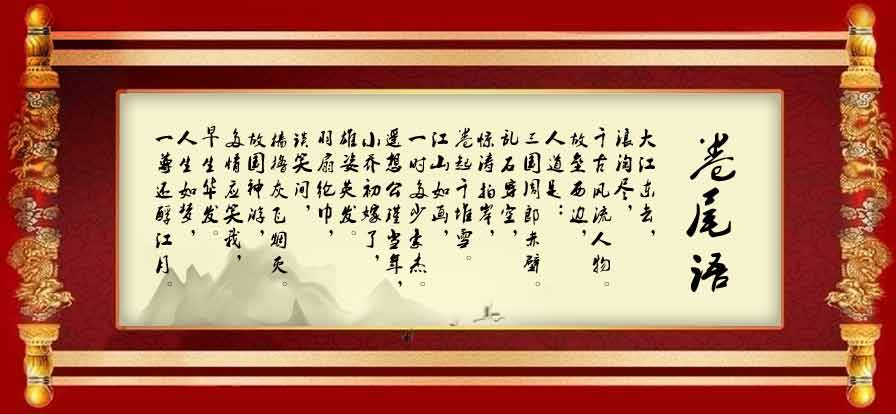 卷尾语
大江东去，
浪淘尽，
千古风流人物。
故垒西边，
人道是：
三国周郎赤壁。
乱石穿空，
惊涛拍岸，
卷起千堆雪。
江山如画，
一时多少豪杰。
遥想公瑾当年，
小乔初嫁了，
雄姿英发。
羽扇纶巾，
谈笑间，
樯橹灰飞烟灭。
故国神游，
多情应笑我，
早生华发。
人生如梦，
一尊还酹江月。